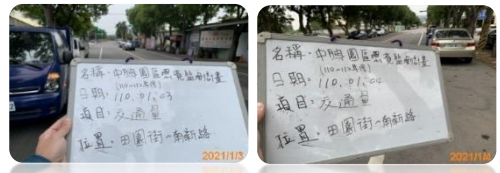 名稱：中壢園區環境監測計畫
(110~112年度)
日期：110.01.03
項目：交通量
位置：田園街-南新路
2021/1/3
名稱：中壢園區環境監測計畫
(110~112年度)
日期：110.01.04
項目：交通量
位置：田園街-南新路
2021/1/4